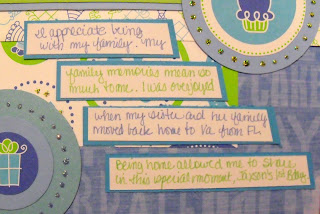 I appreciate being
with my family. My
family memories mean so
much to me. I was overjoyed
when my sister and her family
moved back home to Va from FL.
Being home allowed me to share
in this special moment, Jayson's 1st Bday